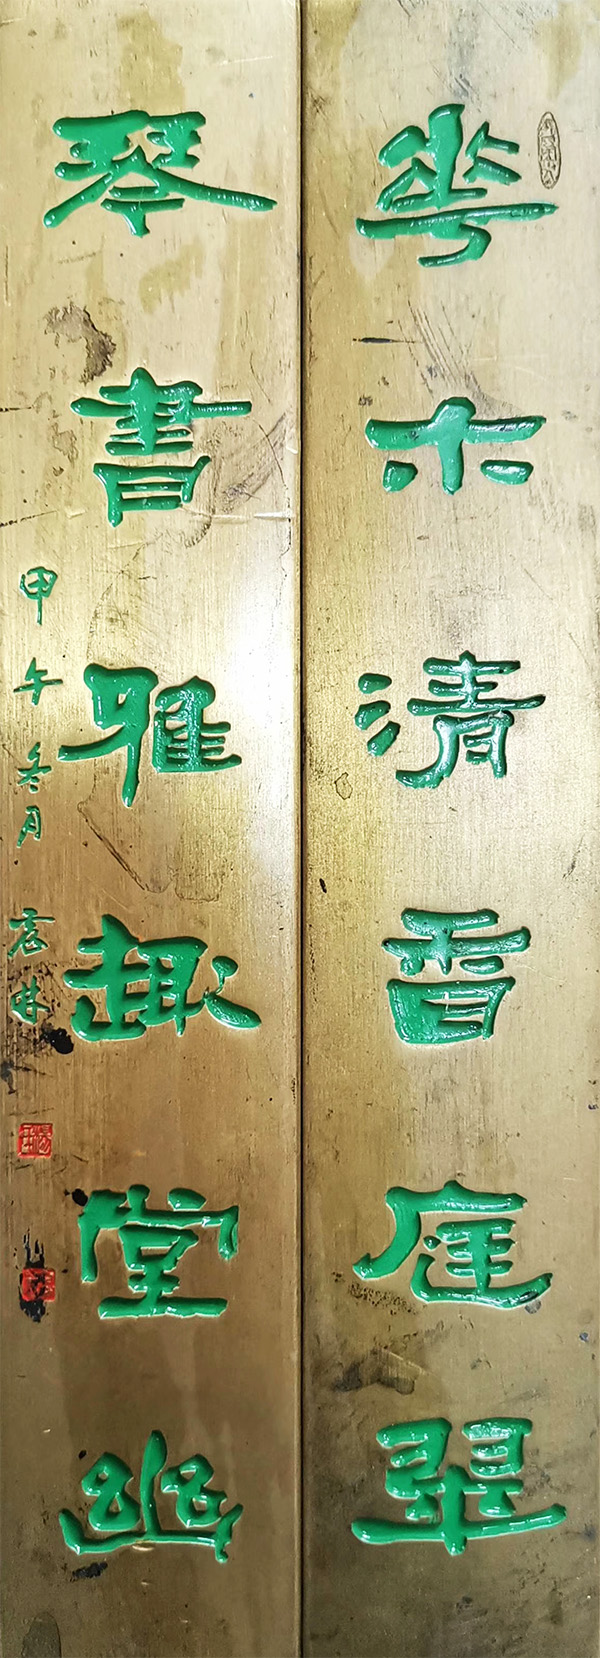 華木清香庭翠
琴書雅趣堂幽
甲午冬月